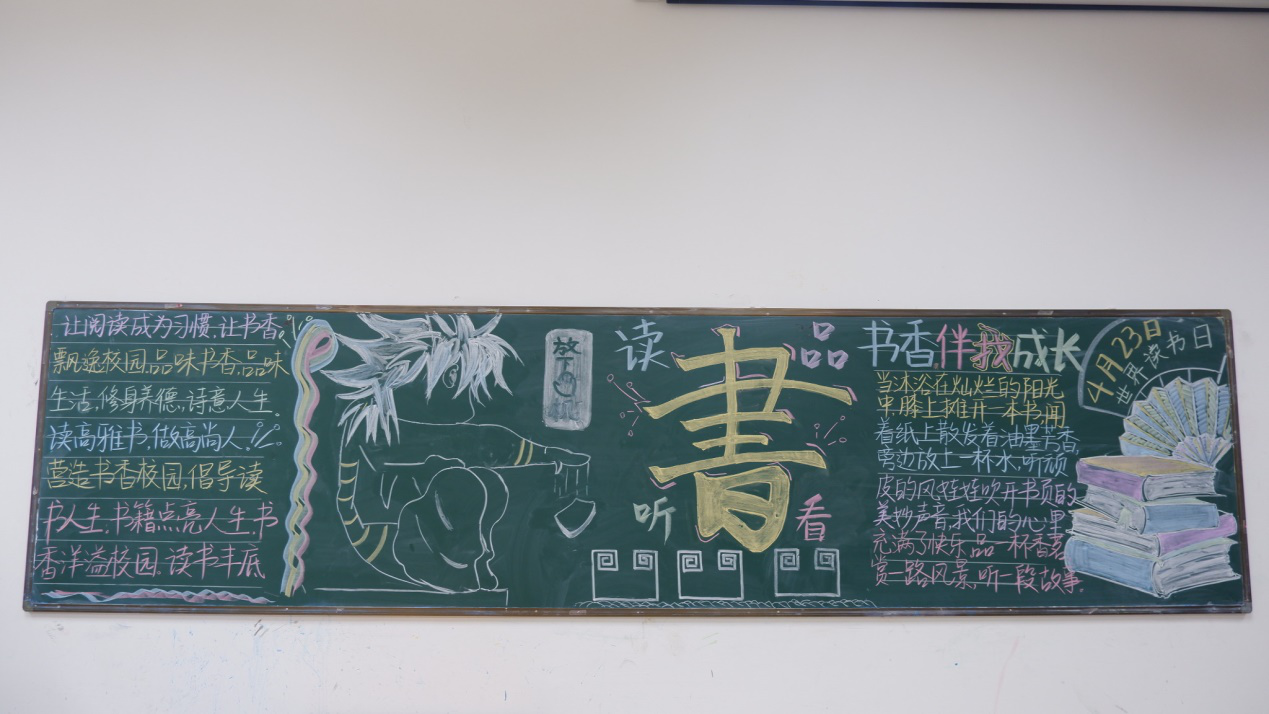 让阅读成为习惯,让书香
飘逸校园,品味书香,品味
生活,修身养德,诗意人生.
读高雅书,做高尚人.
营造书香校园,倡导读
书人生,书籍点亮人生,书
香洋溢校园.读书丰底
放下
读
品
書
听
看
书香伴我成长
当沐浴在灿烂的阳光
中膝上摊开一本书闻
着纸上散发着油墨芳香,
旁边放上一杯水,听顽
皮的风娃娃吹开书页的
美妙声音,我们的心里
充满了快乐品一杯香茗
赏一路风景,听一段故事.
4月23日
世界读书日